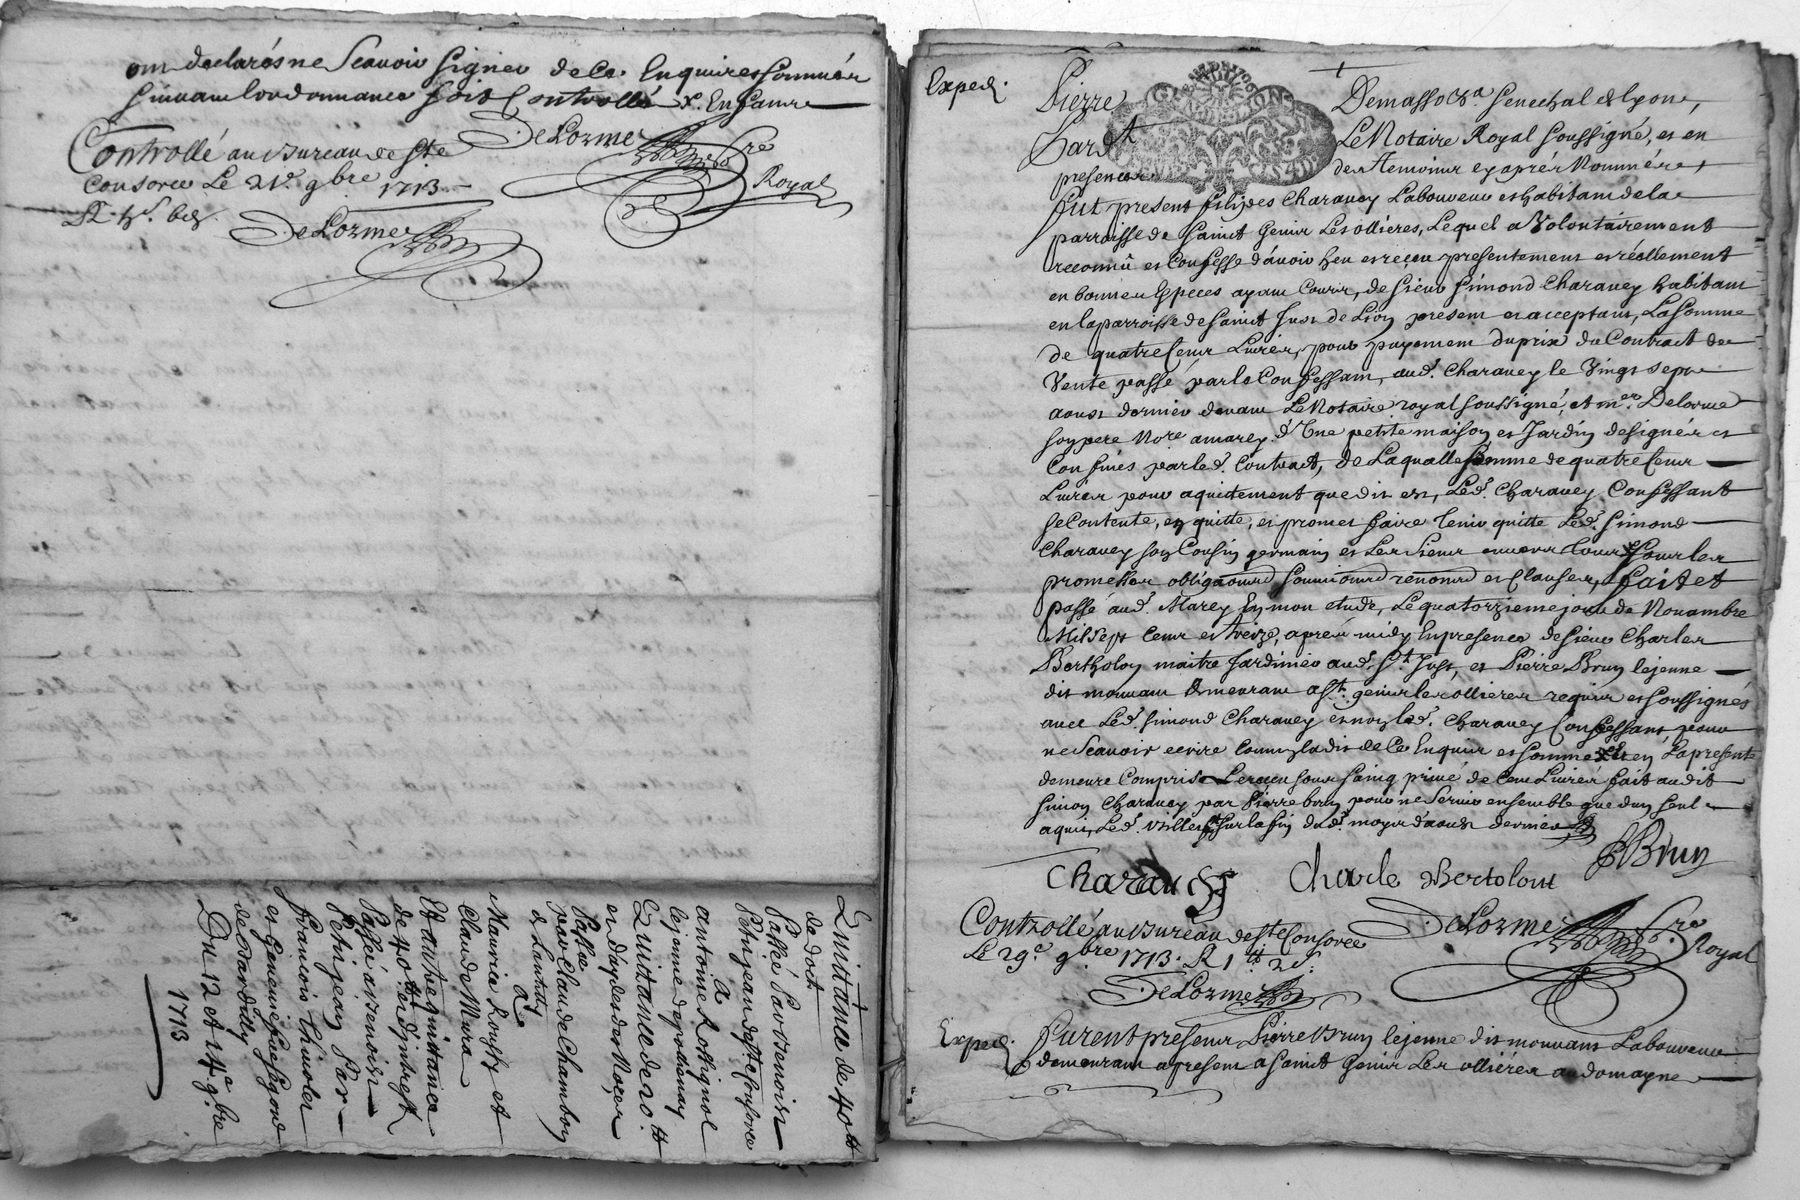 ont declarés ne Scavoir Signer de Ce Enquires Sommués
Suivant Lordonnance Soit Controllé
DeLorme
Nre Royal
Controllé au Bureau de Ste
Consorce Le 21e. 9bre 1713
DeLorme
Quittance de 40 tt
de doct
Passé par Benoist
Petitjean de Ste Consorce
a
antoine Rossignol
le jeune de pollionay
Quittance de 20 tt
et
Passée
par Claude Chamboy
a
Maurice et
Claude Mura
Et autre quittance
de 40 tt
Passé a Benoist
Petitjean Par
francois Thivoler
et
de Dardilly
Du 12 et 14e 9bre
1713
Exped.
Pierre Demasso Sr. a Senechal de Lyon,
Par dt Le Notaire Royal Soussigné, et en
presence des temoins cy aprés Nommés,
fut present Charavey Laboureur et habitant de la
parroisse de Saint Genis Les ollieres, Lequel a Volontairement
reconnû et Confesse d'avoir heu et receu presentement et réellement
en bonnes Especes ayant Cours, de Sieur Simond Charavey habitant
en la parroisse de Saint Just de Lion present et acceptant, La Somme
de quatre Cent Livres, pour payement du prix du Contract de
Vente passé par le Confessant, aud. Charavey le Vingt sept
aoust dernier devant Le Notaire royal soussigné, et mre. Delorme
son pere Nore a marcy d'Une petite maison et Jardin designés et
Confinés par led. Contract, de Laqualle Somme de quatre Cent
Livres pour aquittement que dit est, Led. Charavey Confessant
Se Contente, en quitte, et promet faire tenir quitte Led. Simond
Charavey son Cousin germain et Les Siens envers tous Sous les
promesses obligaõns Soumissions renõns et Clauses, fait et
Passé aud. Marcy En mon etude, Le quatorzieme jour de Novambre
Mil Sept Cent et treize, aprés midy En presence de Sieur Charles
Bertholon maitre Jardinier aud. St. Just, et Pierre Brun le jeune
dit mouvant demeurant a St. genis les ollieres requis et Soussignés
avec Led. Simond Charavey et non led. Charavey Confessant pour
ne Scavoir ecrire Comme la dit de Ce Enquis et Sommé Et en La presente
demeure Comprise Le receu Sous Saing privé de Cent Livres fait audit
Simon Charavey par Pierre brun pour ne Servir ensemble que dun Seul
aquit, Led. billet Sur la fin dud. moys d'aoust dernier
PBrun
Charavey Charle Bertolont
Controllé au Bureau de Ste Consorce
Le 29e. 9bre 1713. R 1 tt 2 s.
DeLorme Nre Royal
DeLorme
Exped. Furent presens Pierre Brun le jeune dit mouvant Laboureur
demeurant a present a Saint Genis Les ollieres au domayne